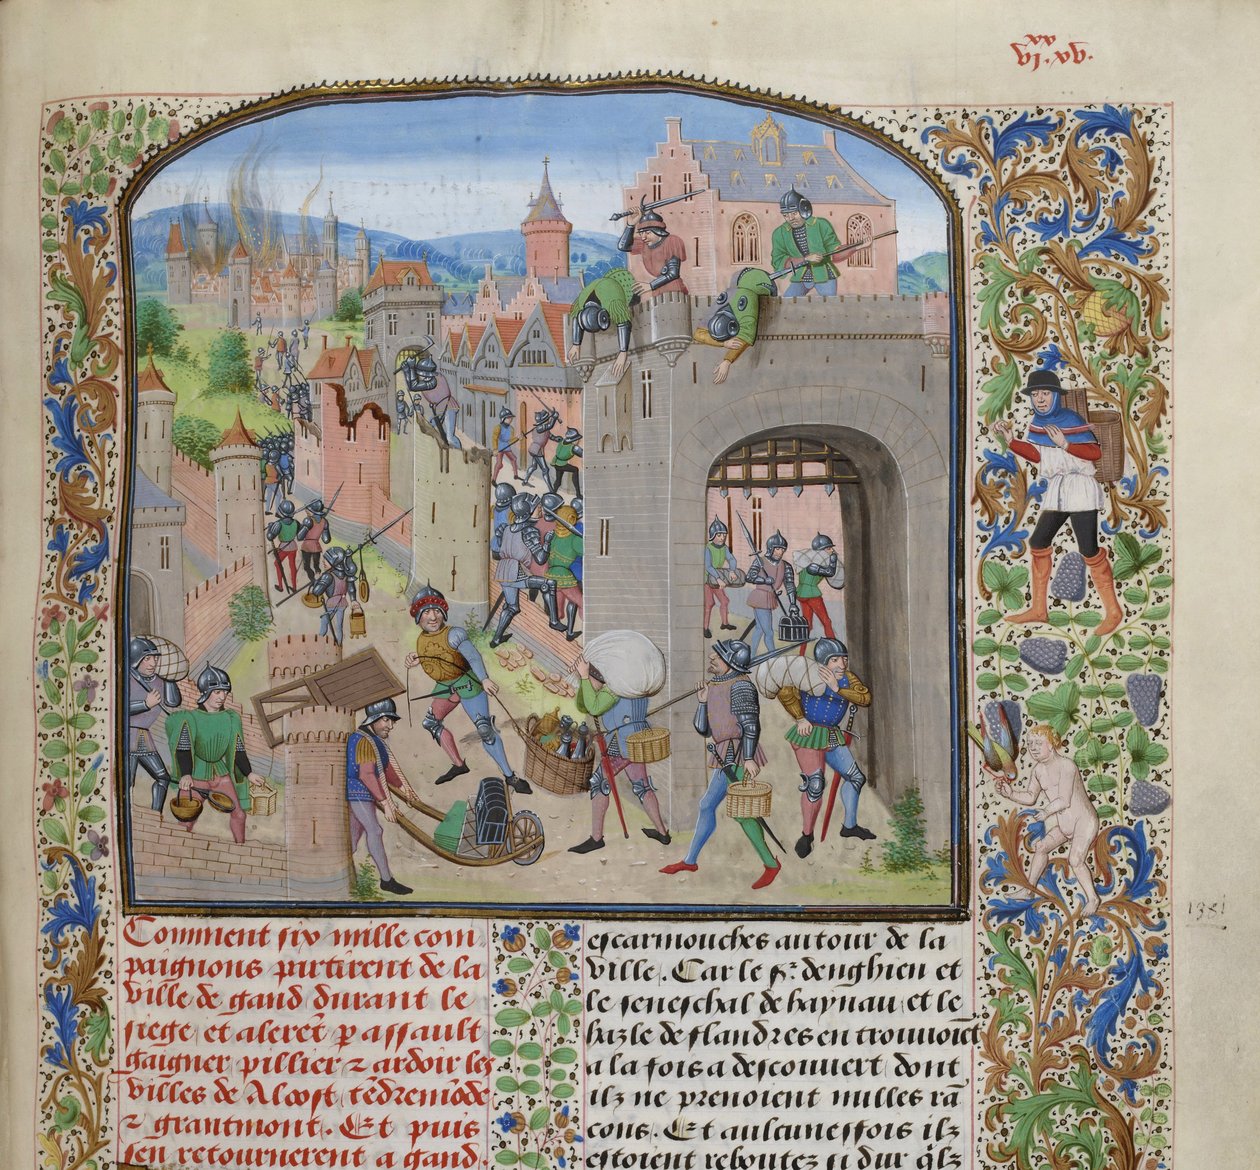 xx
vj. vb.
Comment six mille com
paignons partirent de la
ville de gand durant le
siege et alerēt p assault
gaigner pillier ⁊ ardoir les
villes de Alost tēdremōde
⁊ grantmont. Et puis
sen retournerent a gand.
escarmouches autour de la
ville. Car le sr. denghien et
le seneschal de haynau et le
hazle de flandres en trouuoiēt
a la fois a descouuert dont
ilz ne prenoient nulles rā
cons. Et aulcuneffois ilz
estoient reboutez si dur qlz
1381